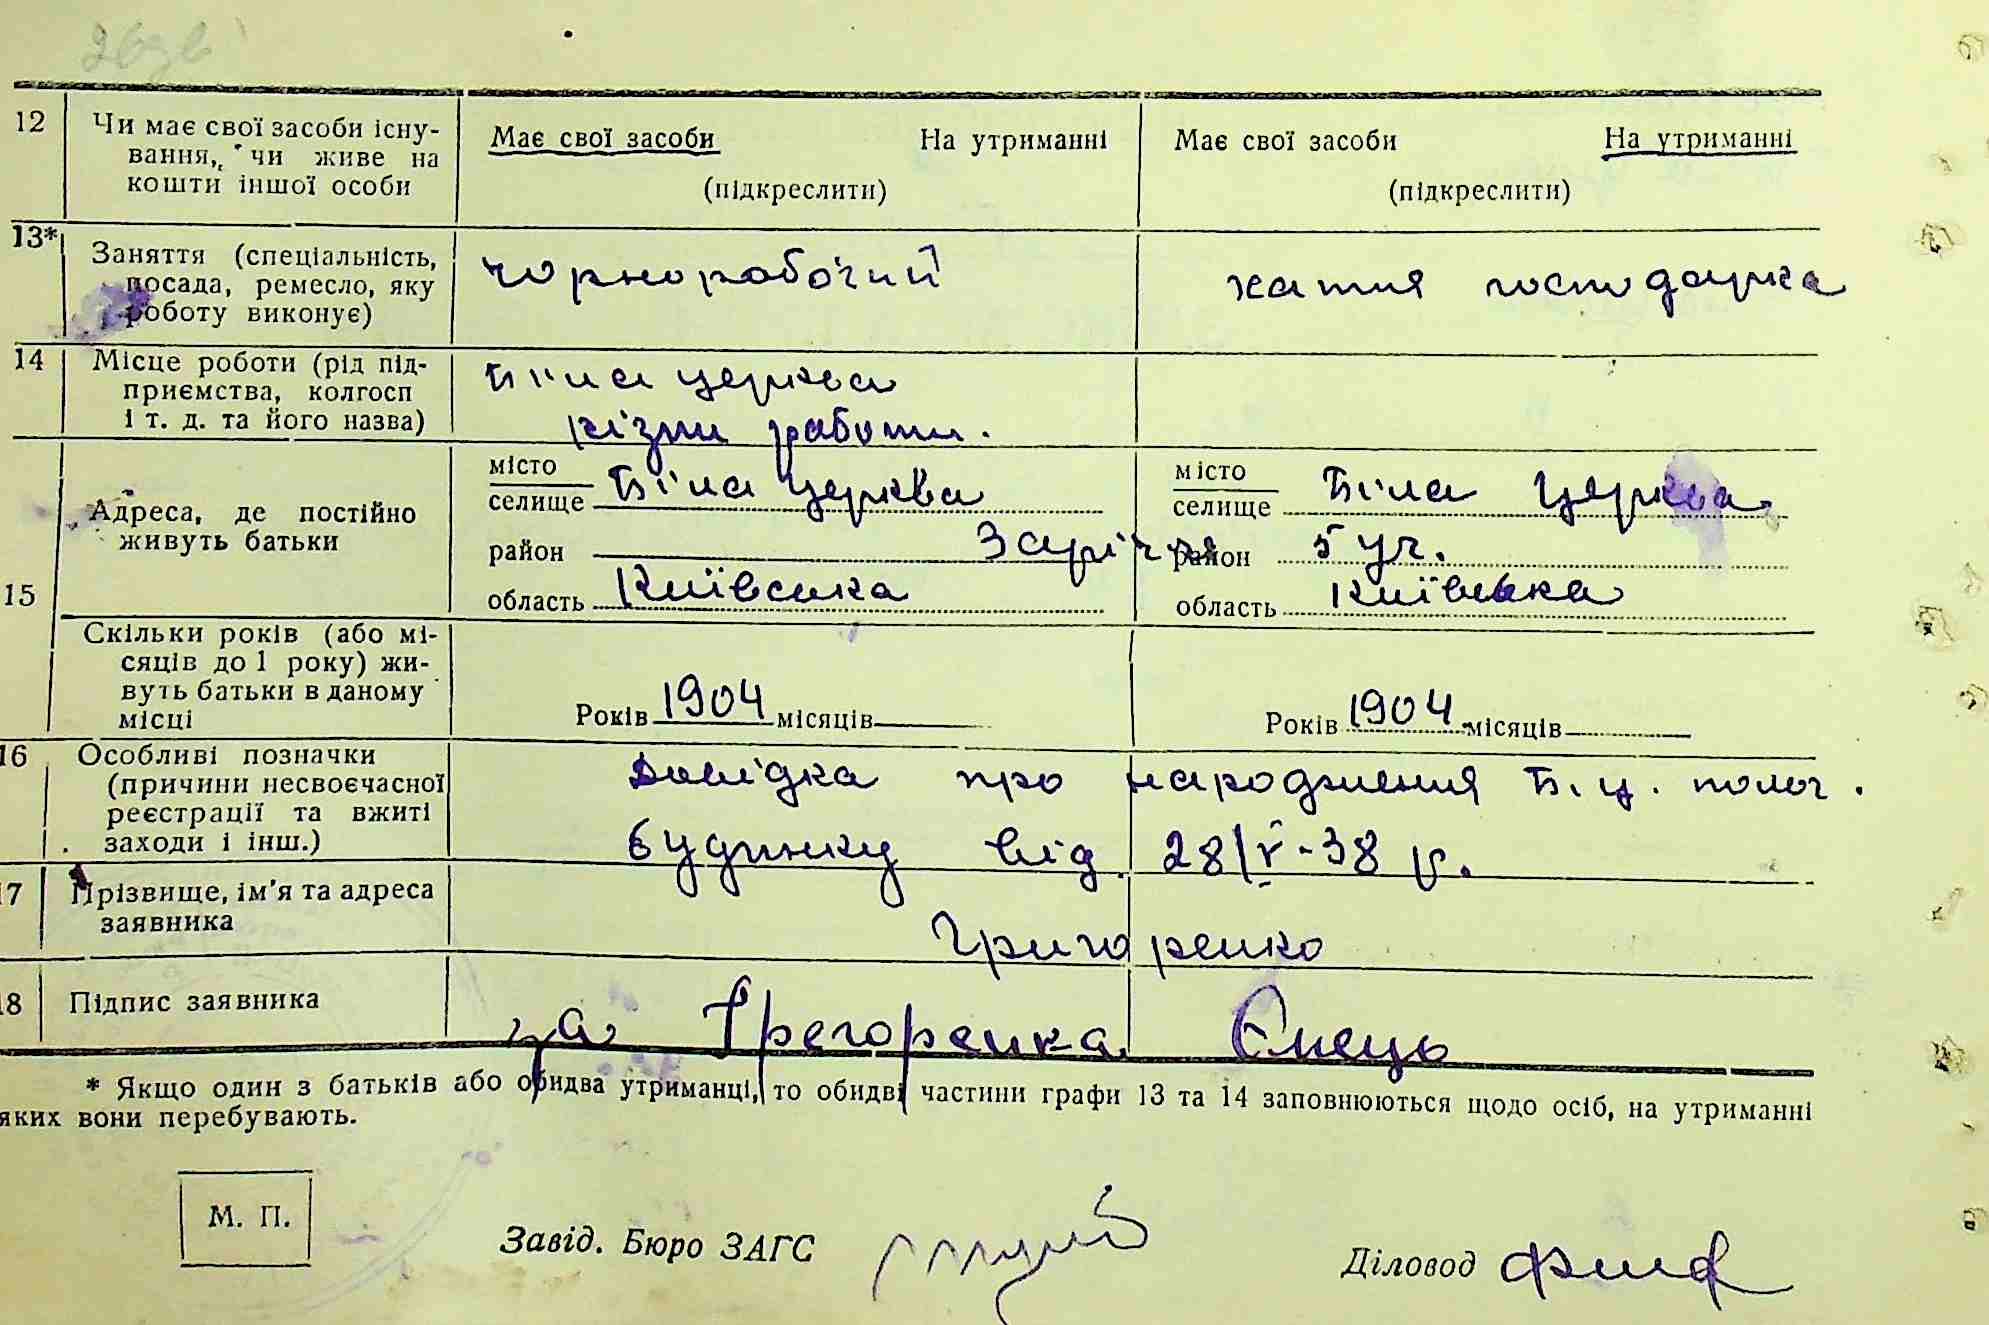 12 Чи має свої засоби існу-
вання, чи живе на
кошти іншої особи
Має свої засоби На утриманні Має свої засоби На утриманні
(підкреслити) (підкреслити)
13* Заняття (спеціальність,
посада, ремесло, яку
роботу виконує)
чорноробочий хатня господарка
14 Місце роботи (рід під-
приємства, колгосп
і т. д. та його назва)
Біла церква
різни работи.
15 Адреса, де постійно
живуть батьки
місто
селище Біла церква
район Зарічча
область Київська
місто
селище Біла Церква
район 5 уч.
область Київська
Скільки років (або мі-
сяців до 1 року) жи-
вуть батьки в даному
місці
Років 1904 місяців Років 1904 місяців
16 Особливі позначки
(причини несвоєчасної
реєстрації та вжиті
заходи і інш.)
Довідка про народження Б. Ц. полог.
будинку від 28/V-38 р.
17 Прізвище, ім'я та адреса
заявника
Григоренко
18 Підпис заявника
за Грегоренка Єнець
* Якщо один з батьків або обидва утриманці, то обидві частини графи 13 та 14 заповнюються щодо осіб, на утриманні
яких вони перебувають.
М. П.
Завід. Бюро ЗАГС
Діловод